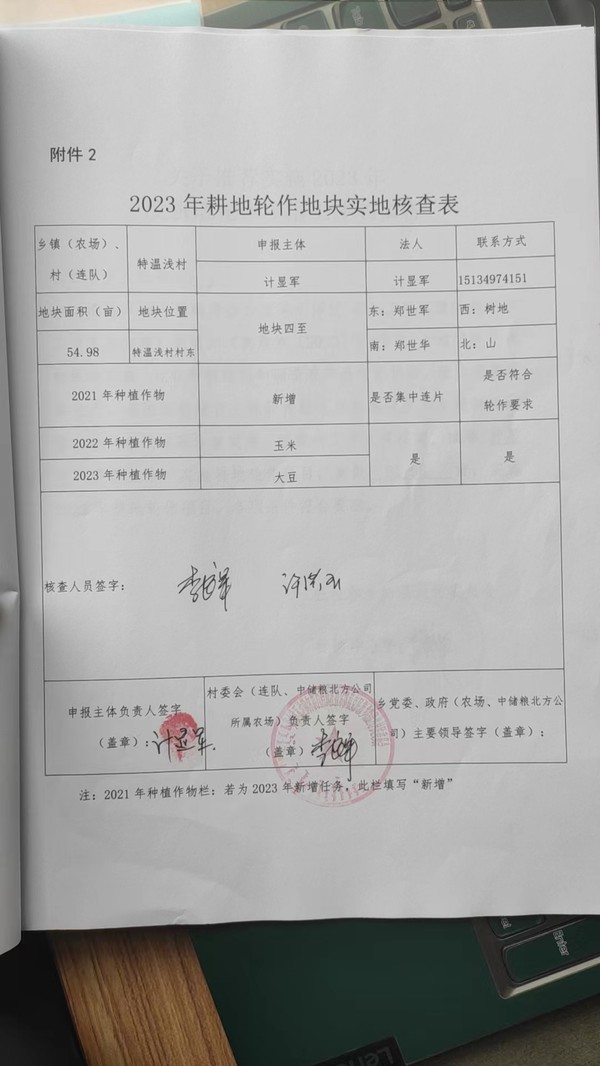 附件 2
2023 年耕地轮作地块实地核查表
乡镇（农场）、村（连队） 特温浅村 申报主体 法人 联系方式
计显军 计显军 15134974151
地块面积（亩） 地块位置 地块四至 东：郑世军 西：树地
54.98 特温浅村村东 南：郑世华 北：山
2021 年种植作物 新增 是否集中连片 是否符合轮作要求
2022 年种植作物 玉米 是 是
2023 年种植作物 大豆
核查人员签字：
申报主体负责人签字
（盖章）：计显军
村委会（连队、中储粮北方公司
所属农场）负责人签字
（盖章）
乡党委、政府（农场、中储粮北方公
司）主要领导签字（盖章）：
注：2021 年种植作物栏：若为 2023 年新增任务，此栏填写“新增”